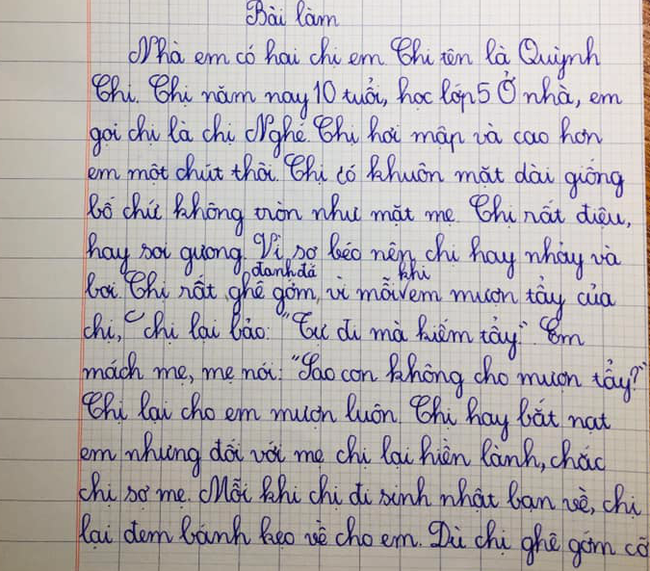 Bài làm
Nhà em có hai chị em. Chị tên là Quỳnh
Chi. Chị năm nay 10 tuổi, học lớp 5. Ở nhà, em
gọi chị là chị Nghé. Chị hơi mập và cao hơn
em một chút thôi. Chị có khuôn mặt dài giống
bố chứ không tròn như mặt mẹ. Chị rất điệu,
hay soi gương. Vì sợ béo nên chị hay nhảy và
đanh đá khi
bơi. Chị rất ghê gớm, vì mỗi em mượn tẩy của
chị, chị lại bảo: "Tự đi mà kiếm tẩy". Em
mách mẹ, mẹ nói: "Sao con không cho mượn tẩy?"
Chị lại cho em mượn luôn. Chị hay bắt nạt
em nhưng đối với mẹ chị lại hiền lành, chắc
chị sợ mẹ. Mỗi khi chị đi sinh nhật bạn về, chị
lại đem bánh kẹo về cho em. Dù chị ghê gớm cỡ